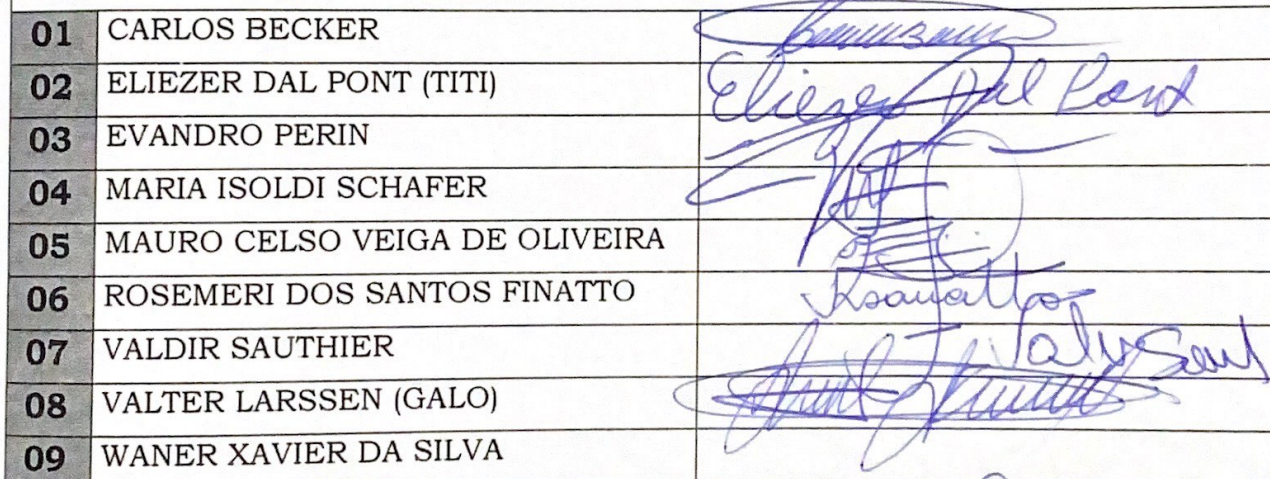 01 CARLOS BECKER
02 ELIEZER DAL PONT (TITI) Eliezer Dal Pont
03 EVANDRO PERIN
04 MARIA ISOLDI SCHAFER
05 MAURO CELSO VEIGA DE OLIVEIRA
06 ROSEMERI DOS SANTOS FINATTO
07 VALDIR SAUTHIER
08 VALTER LARSSEN (GALO)
09 WANER XAVIER DA SILVA